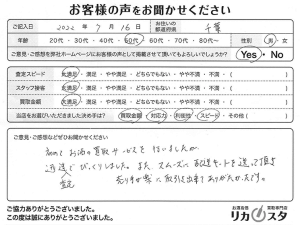 お客様の声をお聞かせください
ご記入日 2022 年 7 月 16 日 お住いの都道府県 千葉
年齢 20代・30代・40代・50代・60代・70代・80代〜 性別 男・女
ご意見・ご感想を弊社ホームページにお客様の声として掲載させて頂いてもよろしいでしょうか? Yes・No
査定スピード 大満足・満足・やや満足・どちらでもない・やや不満・不満・( )
スタッフ接客 大満足・満足・やや満足・どちらでもない・やや不満・不満・( )
買取金額 大満足・満足・やや満足・どちらでもない・やや不満・不満・( )
当店をお選びいただきました決め手は? 買取金額・対応力・利便性・スピード・その他( )
ご意見・ご感想などぜひお聞かせください。
初めてお酒の買取サービスを行いましたが
迅速でびっくりしました。また、スムーズに配送キットを送って頂き
査定
売り手が楽に取引を出来てありがたかったです。
ご協力ありがとうございました。
この度は誠にありがとうございました。
お酒買取 買取専門店
リカスタ